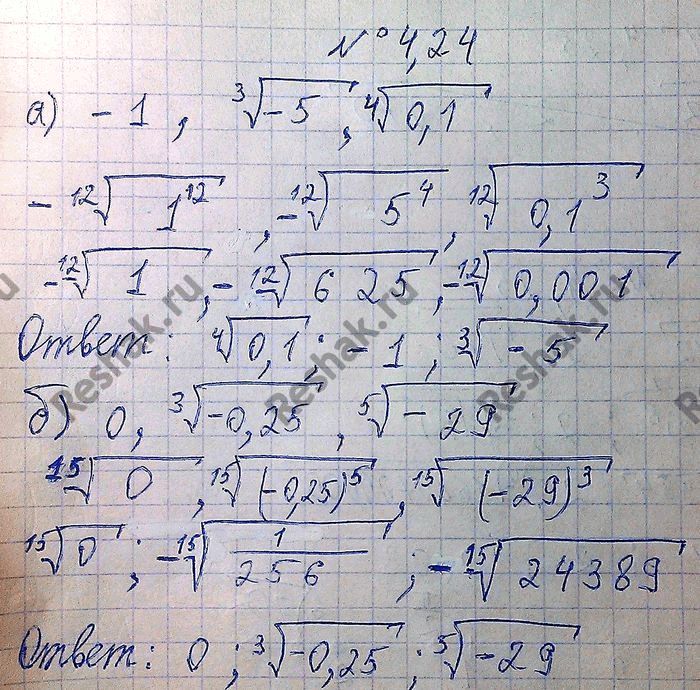 № 4,24
а) -1, ∛-5, ∜0,1
-¹²√1¹², -¹²√5⁴, ¹²√0,1³
-¹²√1, -¹²√625, -¹²√0,001
Ответ: ∜0,1; -1; ∛-5
б) 0, ∛-0,25, ⁵√-29
¹⁵√0, ¹⁵√(-0,25)⁵, ¹⁵√(-29)³
¹⁵√0; -¹⁵√1/256; -¹⁵√24389
Ответ: 0; ∛-0,25; ⁵√-29
Reshak.ru
Reshak.ru
Reshak.ru